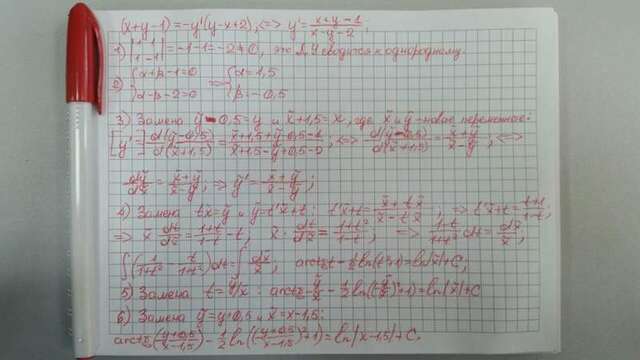 (x+y-1) = -y'(y-x+2), <=> y' = (x+y-1)/(x-y-2);
1) |1 1; 1 -1| = -1-1 = -2 ≠ 0, это Д.У сводится к однородному.
2) {α+β-1=0; α-β-2=0 => {α=1,5; β=-0,5
3) Замена ỹ-0,5=y и x̃+1,5=x, где x̃ и ỹ-новые переменные:
[y'=] d(ỹ-0,5)/d(x̃+1,5) = (x̃+1,5+ỹ-0,5-1)/(x̃+1,5-ỹ+0,5-2); <=> d(ỹ-0,5)/d(x̃+1,5) = (x̃+ỹ)/(x̃-ỹ); <=>
dỹ/dx̃ = (x̃+ỹ)/(x̃-ỹ); => ỹ' = (x̃+ỹ)/(x̃-ỹ);
4) Замена tx̃=ỹ и ỹ'=t'x̃+t: t'x̃+t = (x̃+tx̃)/(x̃-tx̃); => t'x̃+t = (1+t)/(1-t);
=> x̃ dt/dx̃ = (1+t)/(1-t) - t, x̃· dt/dx̃ = (1+t²)/(1-t); => (1-t)/(1+t²) dt = dx̃/x̃;
∫(1/(1+t²) - t/(1+t²))dt = ∫dx̃/x̃; arctg t - 1/2 ln(t²+1) = ln|x̃|+C;
5) Замена t=ỹ/x̃: arctg ỹ/x̃ - 1/2 ln((ỹ/x̃)²+1) = ln|x̃|+C
6) Замена ỹ=y+0,5 и x̃=x-1,5:
arctg((y+0,5)/(x-1,5)) - 1/2 ln(((y+0,5)/(x-1,5))²+1) = ln|x-1,5|+C.